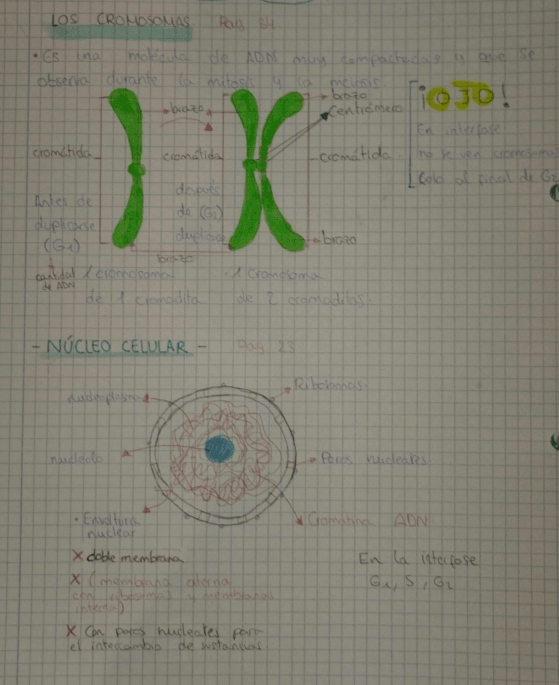 LOS CROMOSOMAS Pág 34
• Es una molécula de ADN muy compactadas y que se
observa durante la mitosis y la meiosis
brazo
brazo
Centrómero
¡OJO!
En interfase
no se ven cromosomas
Solo al final de G2
cromátida
cromátida
cromátida
Antes de
duplicarse
(G1)
después
de (G2)
duplicar
brazo
brazo
cantidad
de ADN
1 cromosoma
de 1 cromadita
1 Cromosoma
de 2 cromaditas
- NÚCLEO CELULAR - Pág 23
nucleoplasma
Ribosomas
nucleolo
Poros nucleares
• Envoltura
nuclear
Cromatina ADN
X doble membrana
X (membrana externa
con ribosomas y membrana
interna)
X Con poros nucleares para
el intercambio de sustancias
En la interfase
G1, S, G2